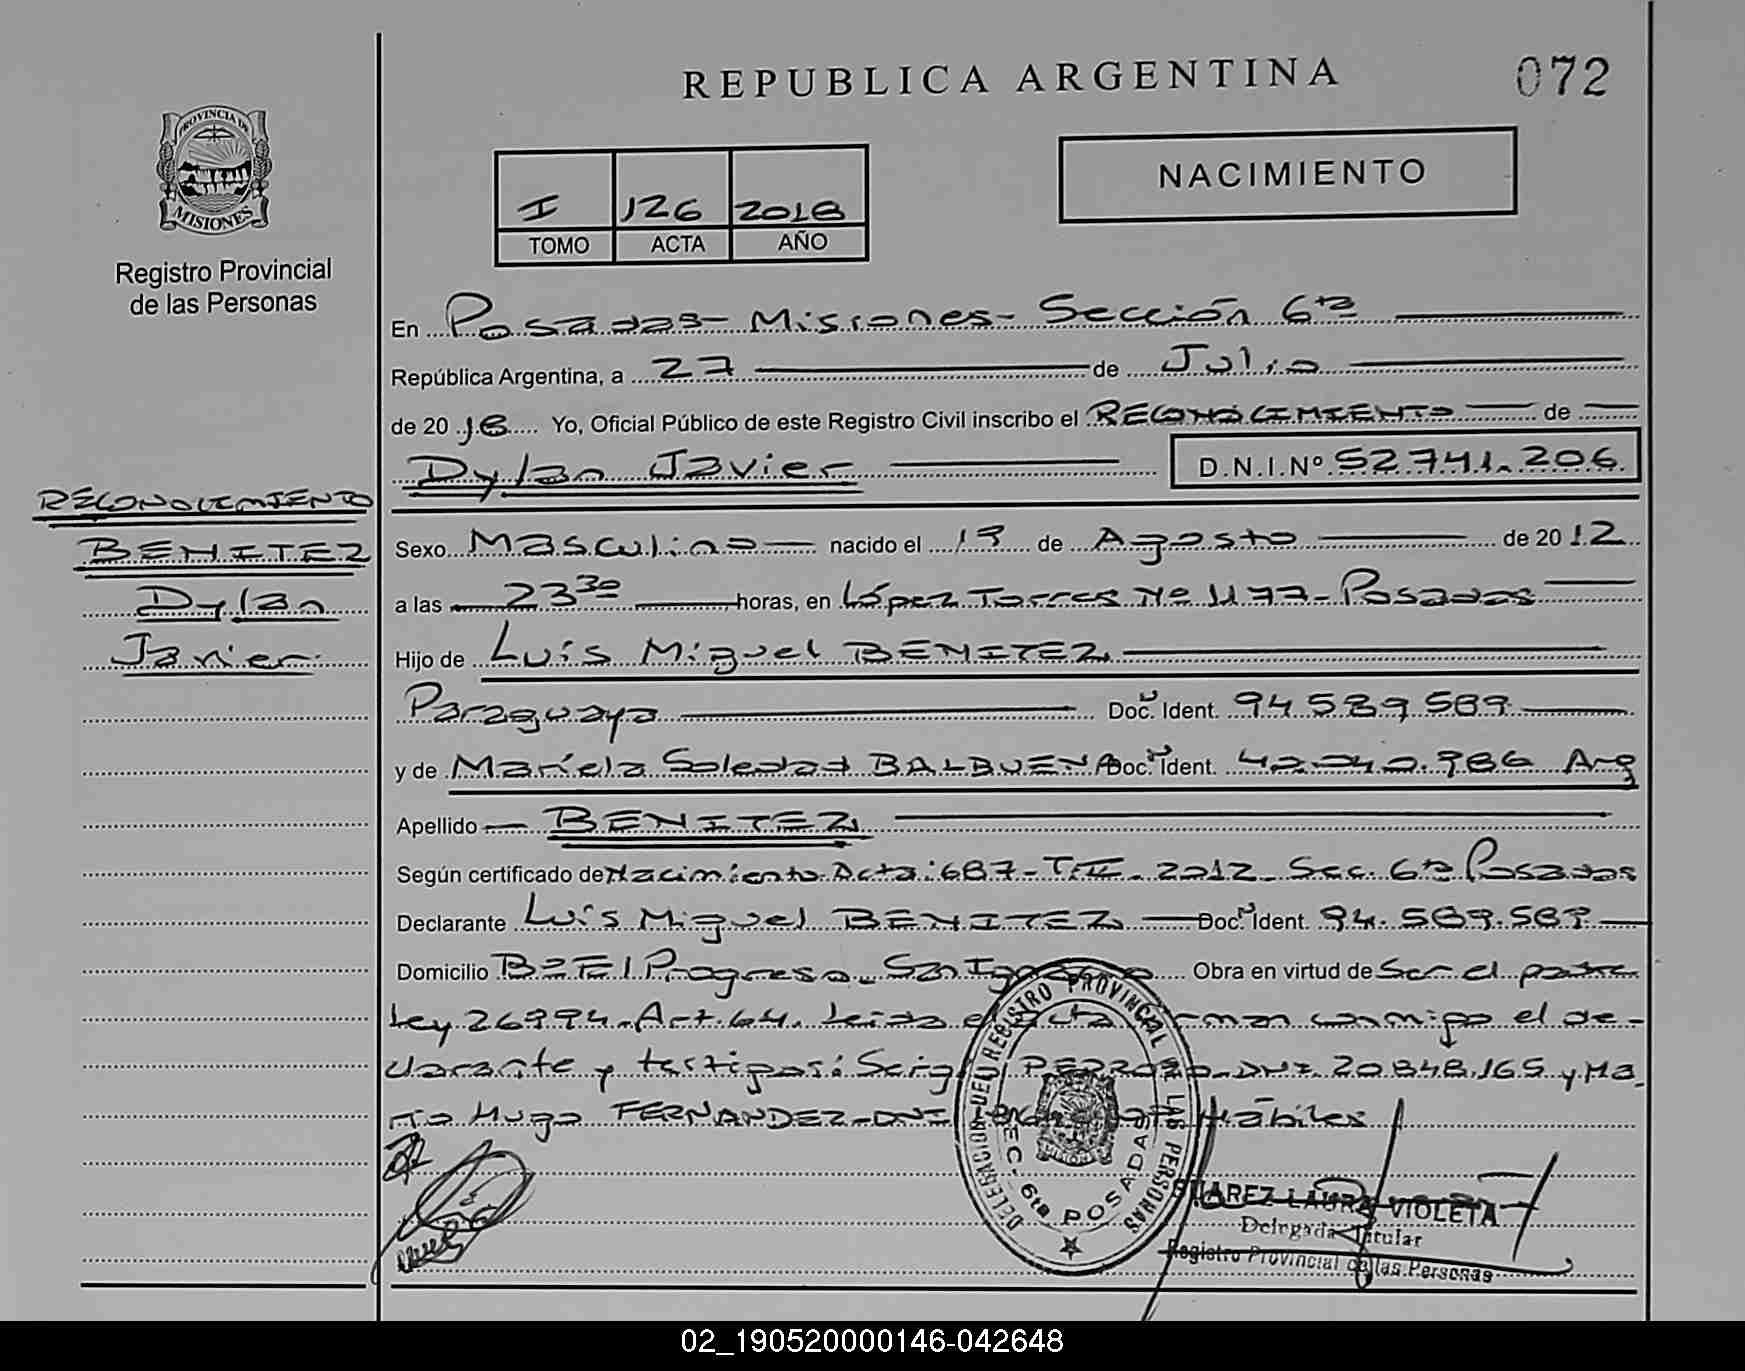 REPUBLICA ARGENTINA
072
PROVINCIA DE
MISIONES
Registro Provincial
de las Personas
NACIMIENTO
I 126 2018
TOMO ACTA AÑO
En Posadas - Misiones - Sección 6ta
República Argentina, a 27 de Julio
de 2018 Yo, Oficial Público de este Registro Civil inscribo el RECONOCIMIENTO de
Dylan Javier D.N.I.Nº 52.741.206
RECONOCIMIENTO
BENITEZ
Dylan
Javier
Sexo Masculino nacido el 19 de Agosto de 2012
a las 23 30 horas, en López Torres Nº 1177 - Posadas
Hijo de Luis Miguel BENITEZ
Paraguaya Doc. Ident. 94.589.589
y de Mariela Soledad BALBUENA Doc. Ident. 42.040.986 Arg
Apellido BENITEZ
Según certificado de Nacimiento Acta: 687 - T.II - 2012 - Sec. 6ta Posadas
Declarante Luis Miguel BENITEZ Doc. Ident. 94.589.589
Domicilio Bº El Progreso - San Obra en virtud de Ser el padre
Ley 26994 - Art. 64. Leída el acta conmigo el de-
clarante y testigos: DNI. 20.848.165 y Ma
rio Hugo FERNANDEZ - DNI Hábiles
DELEGACION DEL REGISTRO PROVINCIAL DE LAS PERSONAS
SEC. 6ta POSADAS
SUAREZ LAURA VIOLETA
Delegada Titular
Registro Provincial de las Personas
02_190520000146-042648